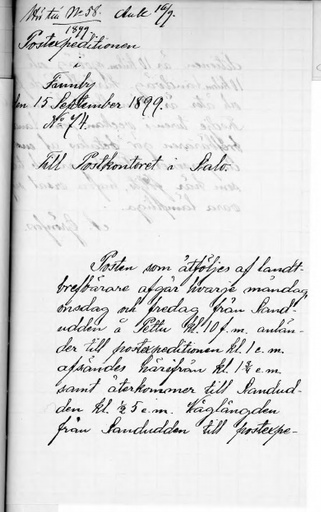 No 58. Ank 16/9.
1899
Postexpeditionen
i
Finnby
den 15 September 1899.
No 74.
Till Postkontoret i Salo.
Posten som åtföljes af landt-
brefbärare afgår hvarje måndag
onsdag och fredag från Sand-
udden å Pettu kl. 10 f.m. anlän-
der till postexpeditionen kl. 1 e.m.
afsändes härifrån kl. 1½ e.m.
samt återkommer till Sandud-
den kl. ½ 5 e.m. Väglängden
från Sandudden till postexpe-